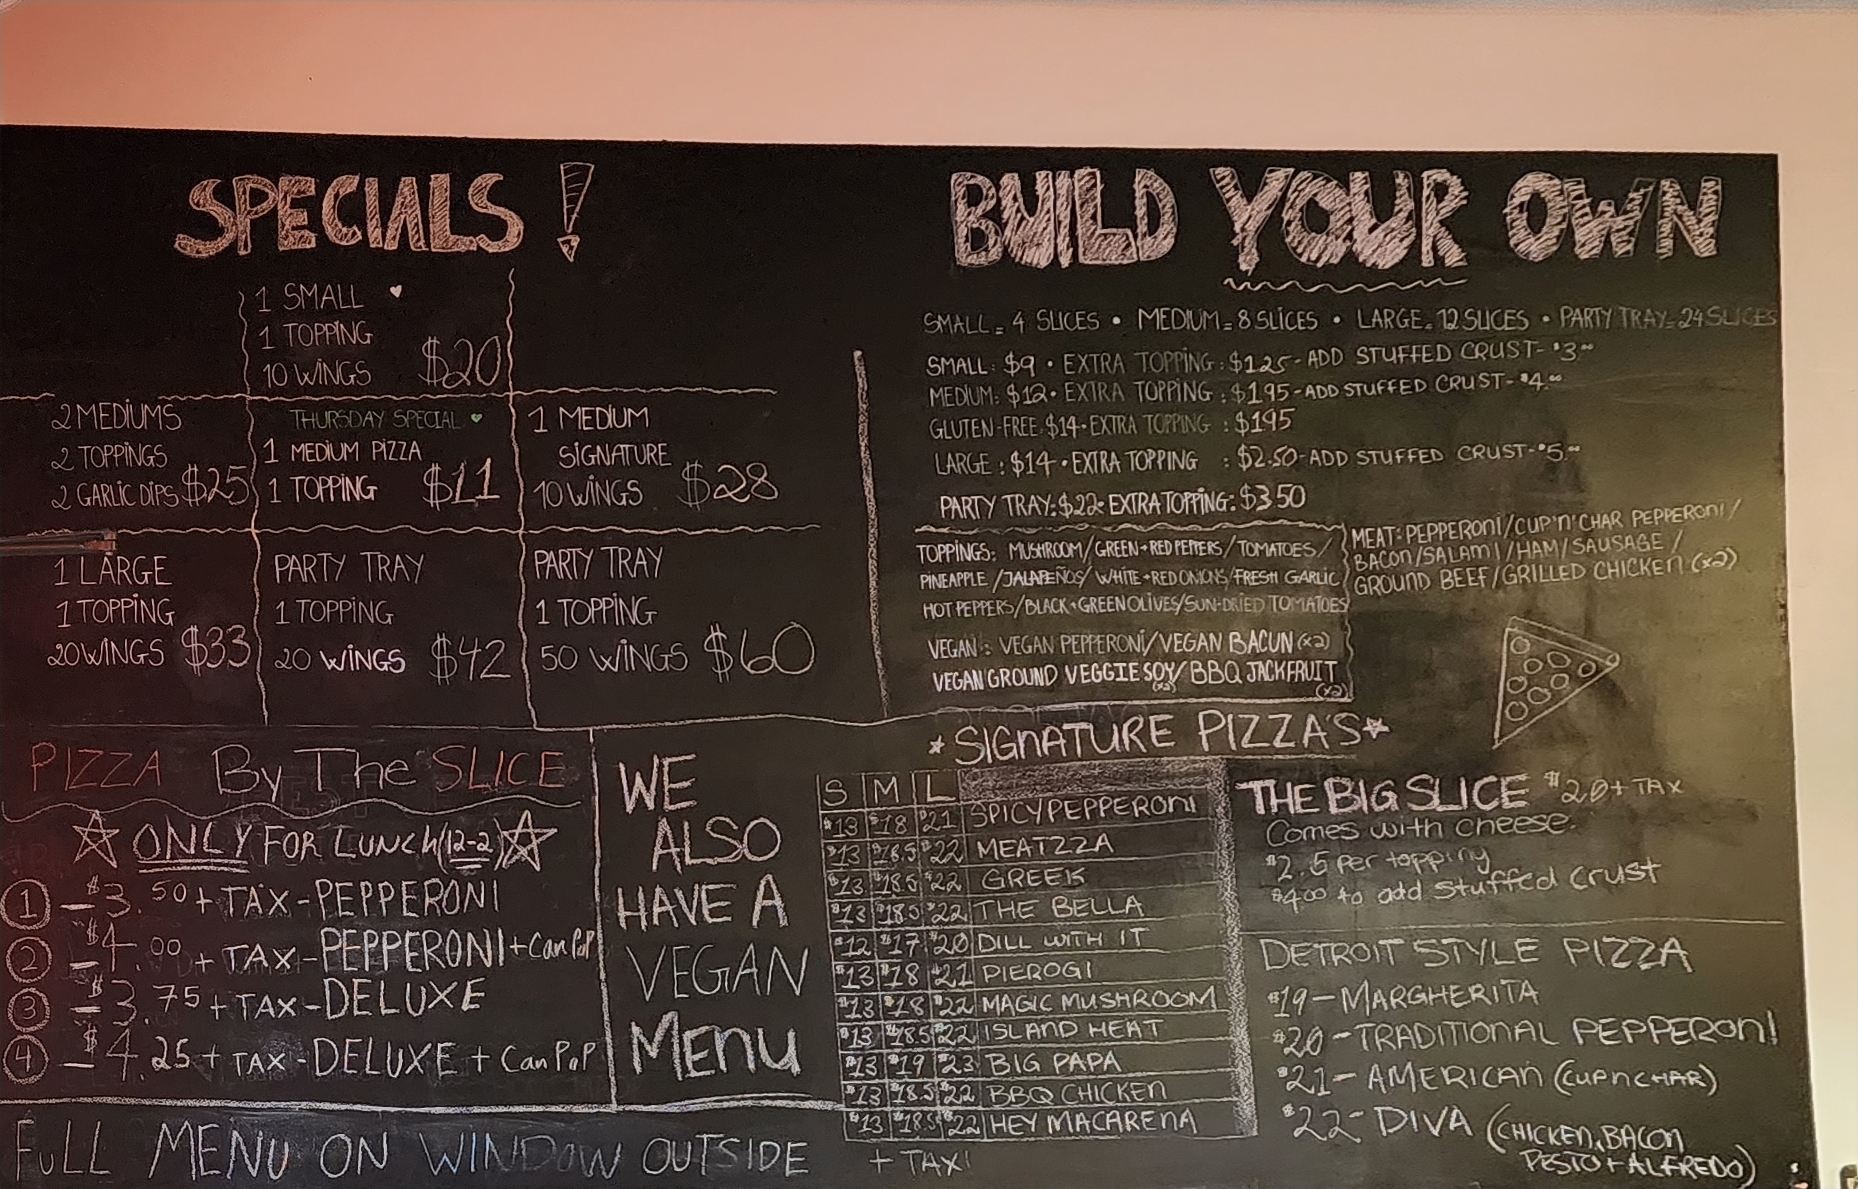 SPECIALS!
1 SMALL
1 TOPPING
10 WINGS $20
2 MEDIUMS
2 TOPPINGS
2 GARLIC DIPS $25
THURSDAY SPECIAL
1 MEDIUM PIZZA
1 TOPPING $11
1 MEDIUM
SIGNATURE
10 WINGS $28
1 LARGE
1 TOPPING
20 WINGS $33
PARTY TRAY
1 TOPPING
20 WINGS $42
PARTY TRAY
1 TOPPING
50 WINGS $60
BUILD YOUR OWN
SMALL = 4 SLICES • MEDIUM = 8 SLICES • LARGE = 12 SLICES • PARTY TRAY = 24 SLICES
SMALL: $9 • EXTRA TOPPING: $1.25 - ADD STUFFED CRUST - $3.00
MEDIUM: $12 • EXTRA TOPPING: $1.95 - ADD STUFFED CRUST - $4.00
GLUTEN-FREE: $14 • EXTRA TOPPING : $1.95
LARGE : $14 • EXTRA TOPPING : $2.50 - ADD STUFFED CRUST - $5.00
PARTY TRAY: $22 • EXTRA TOPPING: $3.50
TOPPINGS: MUSHROOM/GREEN+RED PEPPERS/TOMATOES/
PINEAPPLE/JALAPEÑOS/WHITE+RED ONIONS/FRESH GARLIC
HOT PEPPERS/BLACK+GREEN OLIVES/SUN-DRIED TOMATOES
VEGAN: VEGAN PEPPERONI/VEGAN BACUN (x2)
VEGAN GROUND VEGGIE SOY/BBQ JACKFRUIT
(x2) (x2)
MEAT: PEPPERONI/CUP'N'CHAR PEPPERONI/
BACON/SALAMI/HAM/SAUSAGE/
GROUND BEEF/GRILLED CHICKEN (x2)
PIZZA By The SLICE
ONLY FOR LUNCH (12-2)
1 - $3.50 + TAX - PEPPERONI
2 - $4.00 + TAX - PEPPERONI + Can Pop
3 - $3.75 + TAX - DELUXE
4 - $4.25 + TAX - DELUXE + Can Pop
WE
ALSO
HAVE A
VEGAN
Menu
FULL MENU ON WINDOW OUTSIDE
SIGNATURE PIZZA'S
S M L
$13 $18 $21 SPICY PEPPERONI
$13 $18.5 $22 MEATZZA
$13 $18.5 $22 GREEK
$13 $18.5 $22 THE BELLA
$12 $17 $20 DILL WITH IT
$13 $18 $21 PIEROGI
$13 $18 $22 MAGIC MUSHROOM
$13 $18.5 $22 ISLAND HEAT
$13 $19 $23 BIG PAPA
$13 $18.5 $22 BBQ CHICKEN
$13 $18.5 $22 HEY MACARENA
+ TAX!
THE BIG SLICE $20 + TAX
Comes with cheese.
$2.5 per topping
$4.00 to add stuffed crust
DETROIT STYLE PIZZA
$19 - MARGHERITA
$20 - TRADITIONAL PEPPERONI
$21 - AMERICAN (CUP N CHAR)
$22 - DIVA (CHICKEN, BACON
PESTO + ALFREDO)